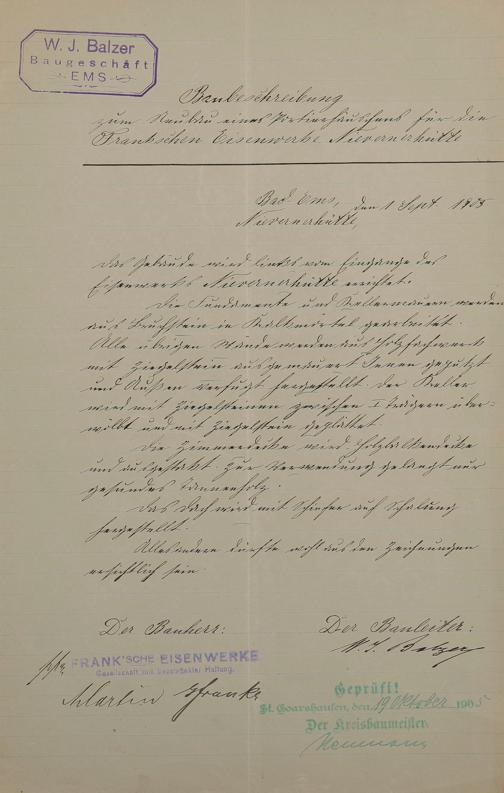 W. J. Balzer
Baugeschäft
EMS
Baubeschreibung
zum Neubau eines Portierhäuschens für die
Frankschen Eisenwerke Nievernerhütte
Bad Ems, den 1 Sept 1905
Nievernerhütte,
Das Gebäude wird links vom Eingange des
Eisenwerks Nievernerhütte errichtet.
Die Fundamente und Kellermauern werden
aus Bruchstein in Kalkmörtel gearbeitet.
Alle übrigen Wände werden aus Holzfachwerk
mit Ziegelstein ausgemauert Innen geputzt
und Außen verfugt hergestellt. Der Keller
wird mit Ziegelsteinen zwischen I Trägern über-
wölbt und mit Ziegelstein geplättet.
Die Zimmerdecke wird Holzbalkendecke
und ausgestakt. Zur Verwendung gelangt nur
gesundes Tannenholz.
Das Dach wird mit Schiefer auf Schalung
hergestellt.
Alles andere dürfte wohl aus den Zeichnungen
ersichtlich sein.
Der Bauherr: Der Bauleiter:
W. J. Balzer
ppa FRANK'SCHE EISENWERKE
Gesellschaft mit beschränkter Haftung.
Martin Franke
Geprüft!
St. Goarshausen, den 19 Oktober 1905
Der Kreisbaumeister.